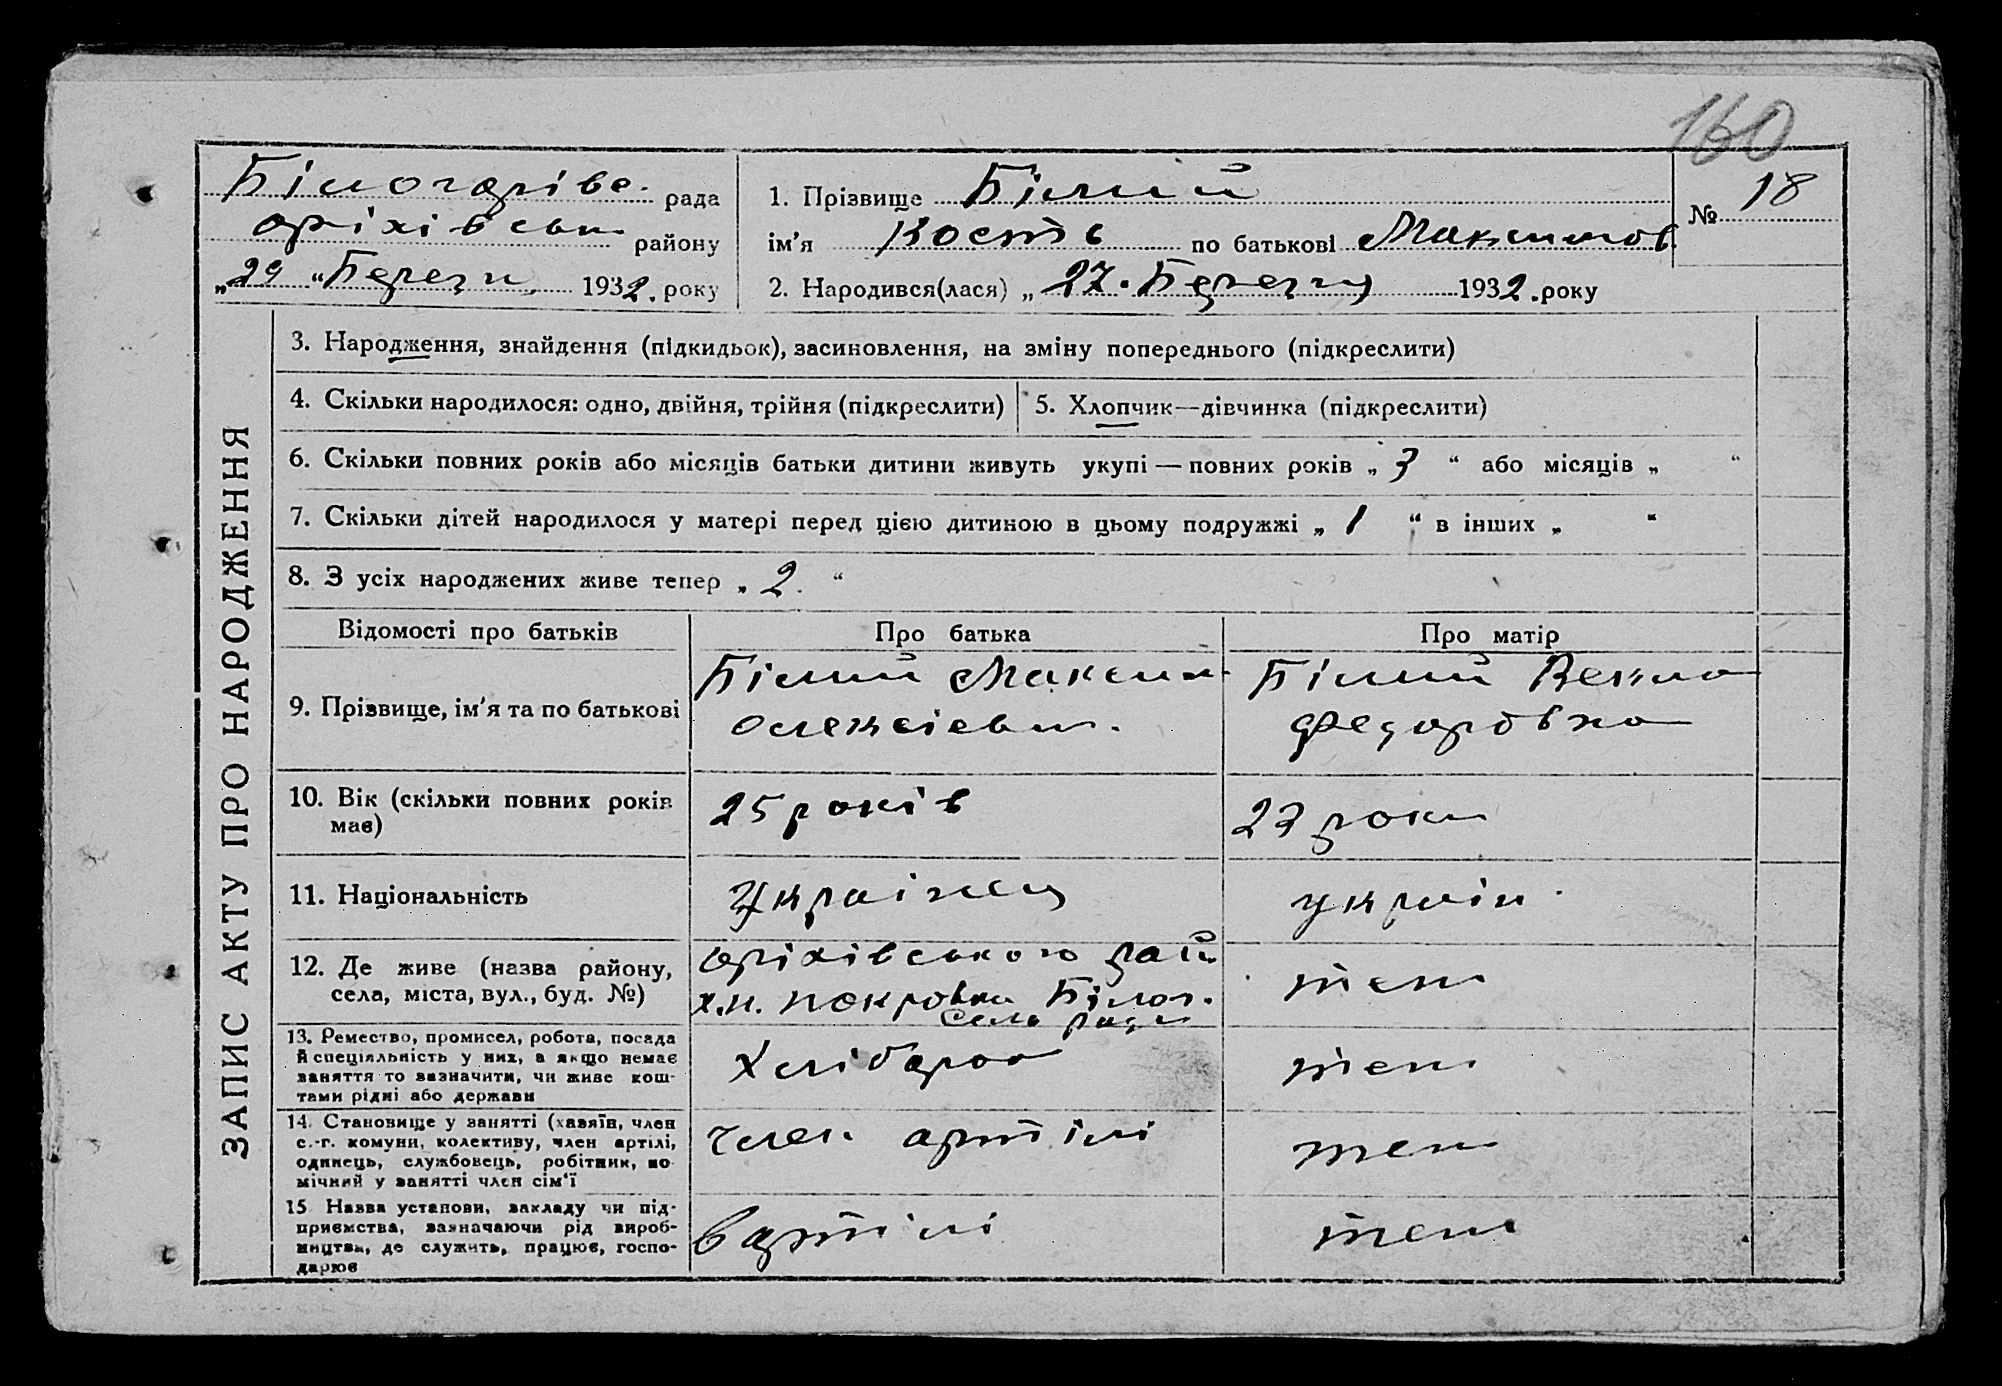 160
Білогарівс. рада
оріхівськ району
„29“ Березн. 1932. року
1. Прізвище Білий
ім'я Кость по батькові Максимов
2. Народився(лася) „27. Березня 1932. року
№ 18
ЗАПИС АКТУ ПРО НАРОДЖЕННЯ
3. Народження, знайдення (підкидьок), засиновлення, на зміну попереднього (підкреслити)
4. Скільки народилося: одно, двійня, трійня (підкреслити)
5. Хлопчик—дівчинка (підкреслити)
6. Скільки повних років або місяців батьки дитини живуть укупі — повних років „ 3 “ або місяців „ “
7. Скільки дітей народилося у матері перед цією дитиною в цьому подружжі „ 1 “ в інших „ “
8. З усіх народжених живе тепер „ 2. “
Відомості про батьків
Про батька
Про матір
9. Прізвище, ім'я та по батькові
Білий Максим
олексієви.
Білий Векла
Федоровна
10. Вік (скільки повних років
має)
25 років
23 роки
11. Національність
Українец
україн.
12. Де живе (назва району,
села, міста, вул., буд. №)
оріхівського рай
х.н. покровка Білог.
Сель ради
теж
13. Ремество, промисел, робота, посада
й спеціяльність у них, а якщо немає
заняття то зазначити, чи живе кош-
тами рідні або держави
Хлібароб
теж
14. Становище у занятті (хазяїн, член
с.-г. комуни, колективу, член артілі,
одинець, службовець, робітник, по-
мічний у занятті член сім'ї
член артілі
теж
15 Назва установи, закладу чи під-
приємства, зазначаючи рід вироб-
ництва, де служить, працює, госпо-
дарює
в артілі
теж